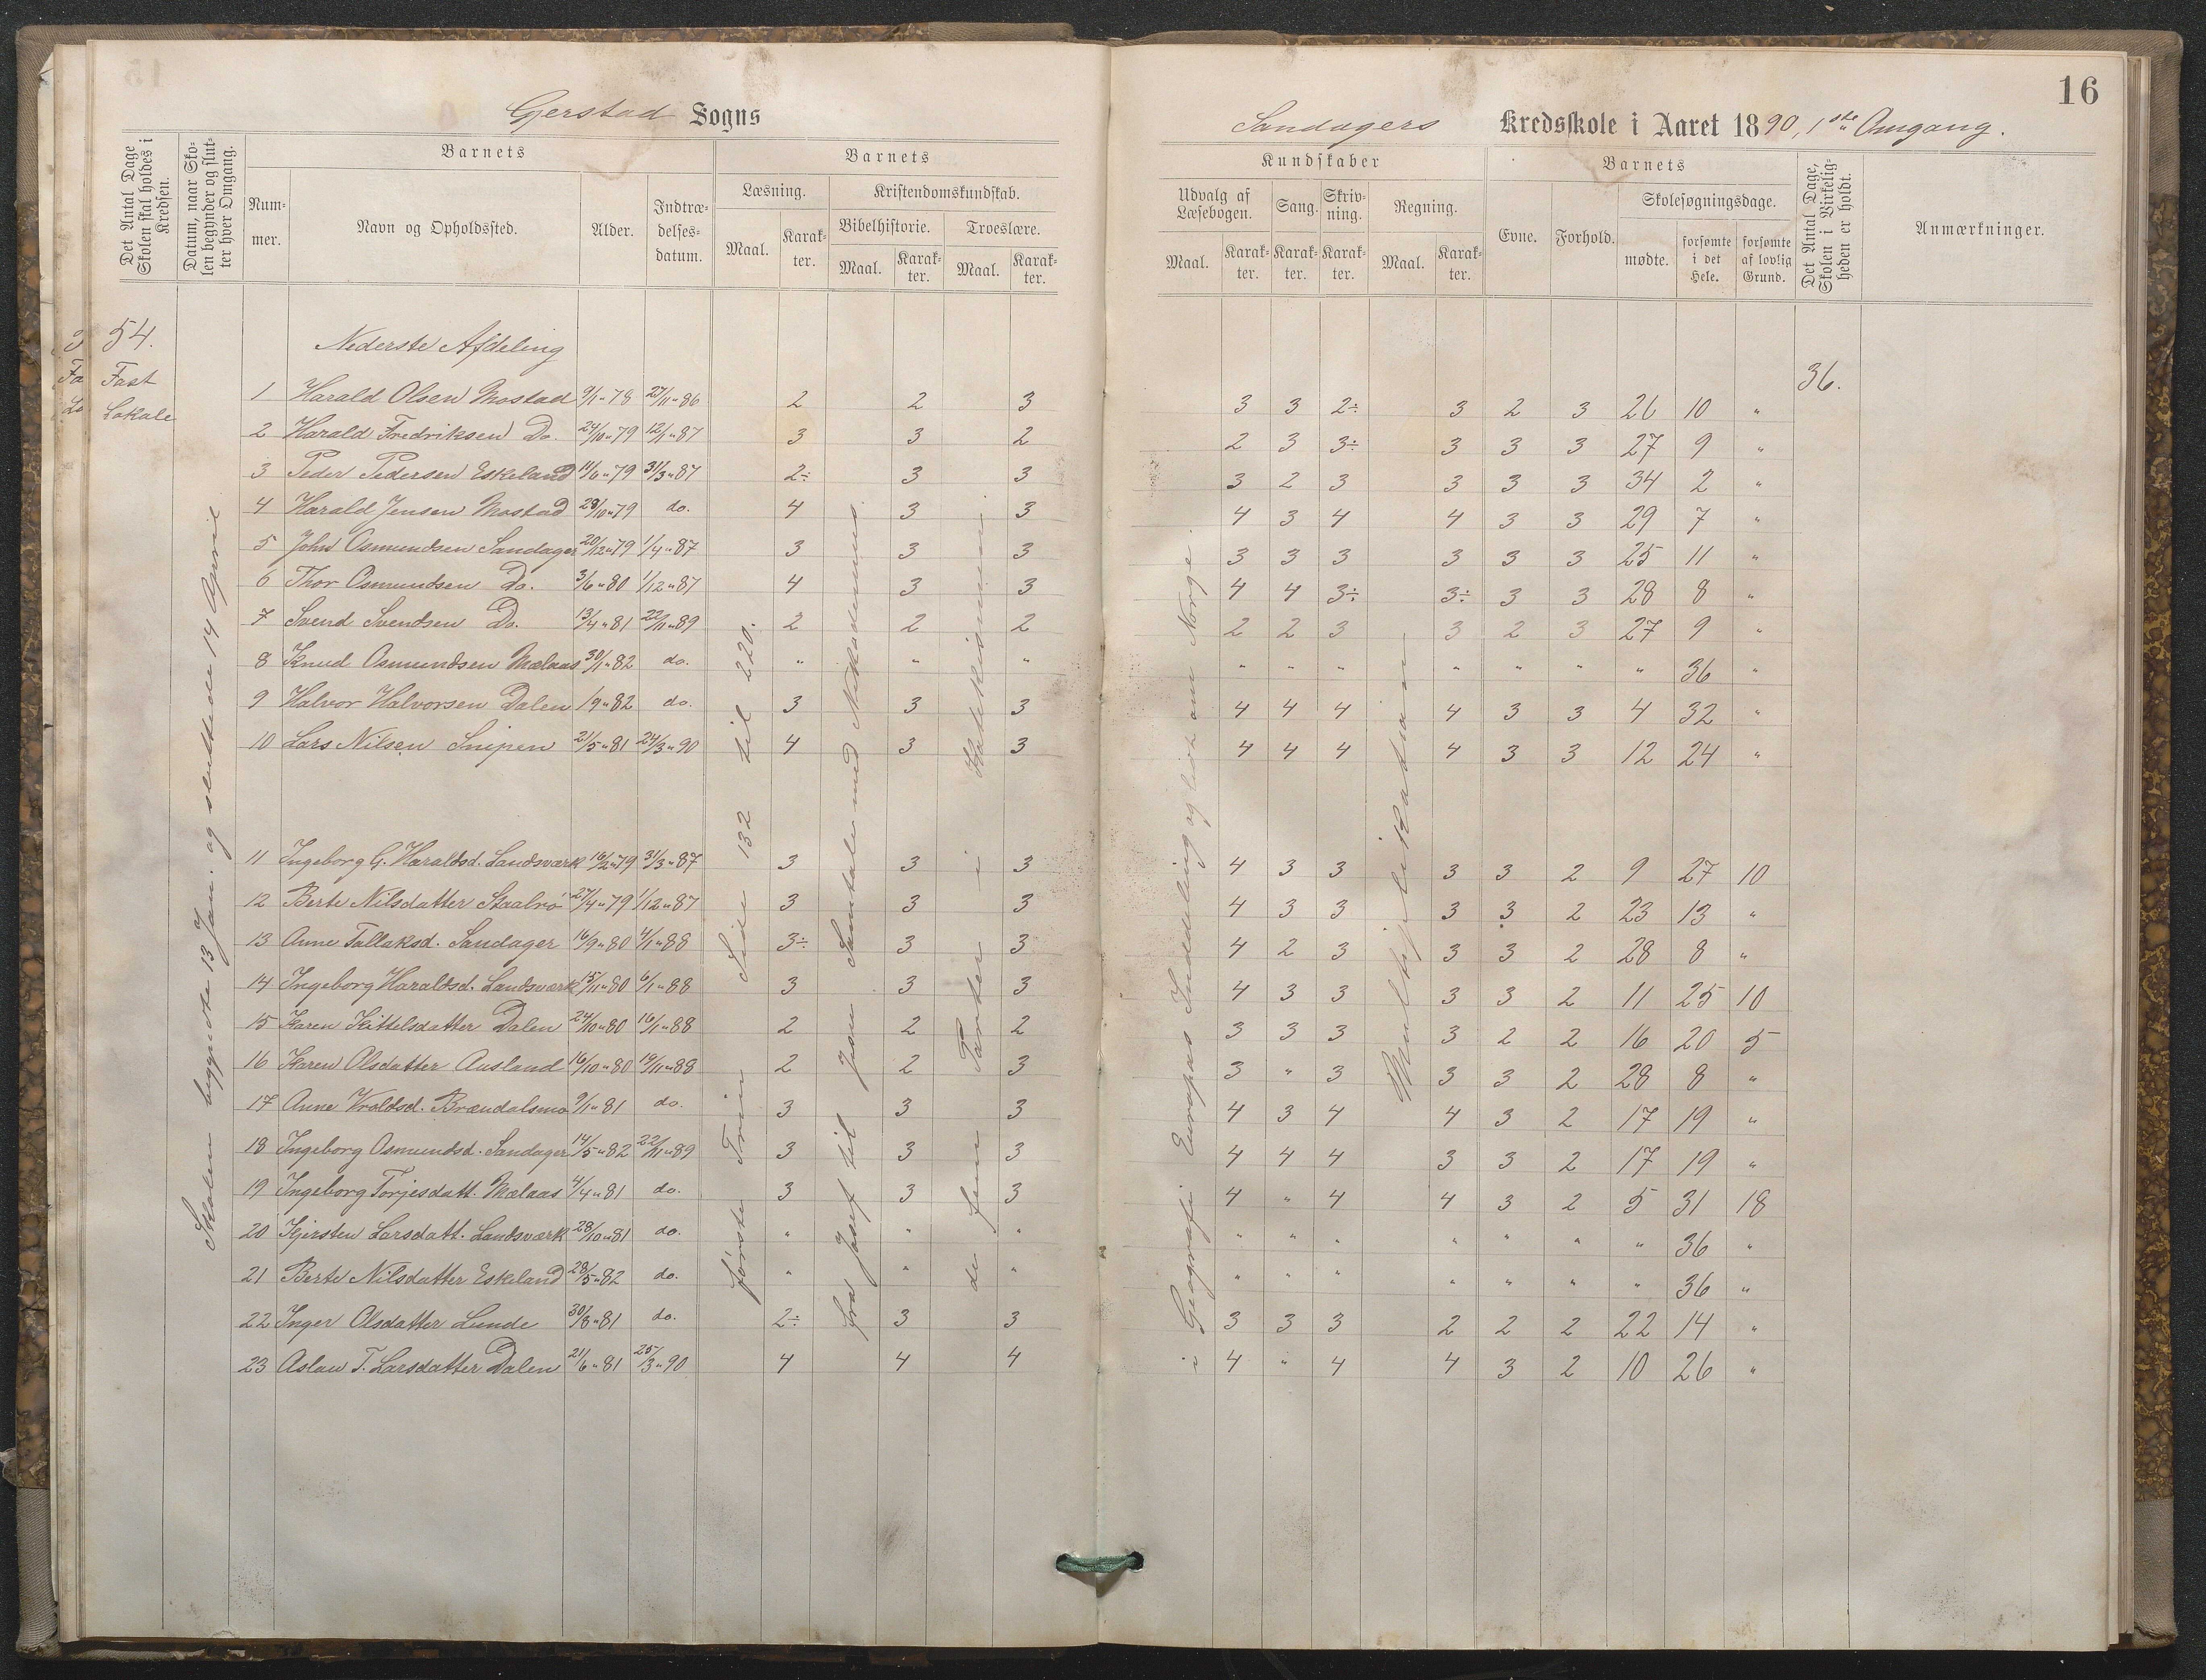 16
Gerstad Sogns
Sandagers Kredsskole i Aaret 1890, 1ste Omgang.
Det Antal Dage Skolen skal holdes i Kredsen.
Datum, naar Skolen begynder og slutter hver Omgang.
Barnets
Nummer.
Navn og Opholdssted.
Alder.
Indtrædelsesdatum.
Barnets
Læsning.
Maal.
Karakter.
Kristendomskundskab.
Bibelhistorie.
Maal.
Karakter.
Troeslære.
Maal.
Karakter.
Kundskaber
Udvalg af Læsebogen.
Maal.
Karakter.
Sang.
Karakter.
Skrivning.
Karakter.
Regning.
Maal.
Karakter.
Barnets
Evne.
Forhold.
Skolesøgningsdage.
mødte.
forsømte i det Hele.
forsømte af lovlig Grund.
Det Antal Dage, Skolen i Virkeligheden er holdt.
Anmærkninger.
54.
Fast
Lokale
Skolen begyndte 13 Jan. og sluttede 14 April
første Trin Side 132 til 220.
fra Josef til Jesu Samtale med Nikodemus
de fem Parter i Katekismus
i Geografi Europas Inddeling og lidt om Norge.
Multiplikation
36.
Nederste Afdeling
1 Harald Olsen Mostad 9/1 " 78 27/11 " 86 2 2 3 3 3 2÷ 3 2 3 26 10 "
2 Harald Fredriksen Do. 24/10 " 79 12/1 " 87 3 3 2 2 3 3÷ 3 3 3 27 9 "
3 Peder Pedersen Eskeland 14/6 " 79 31/3 " 87 2÷ 3 3 3 2 3 3 3 3 34 2 "
4 Harald Jensen Mostad 29/10 " 79 do. 4 3 3 4 3 4 4 3 3 29 7 "
5 John Osmundsen Sandager 20/12 " 79 1/4 " 87 3 3 3 3 3 3 3 3 3 25 11 "
6 Thor Osmundsen Do. 3/6 " 80 1/12 " 87 4 3 3 4 4 3÷ 3÷ 3 3 28 8 "
7 Svend Svendsen Do. 13/4 " 81 22/11 " 89 2 2 2 2 2 3 3 2 3 27 9 "
8 Knud Osmundsen Mælaas 30/1 " 82 do. " " " " " " " " " " 36 "
9 Halvor Halvorsen Dalen 1/9 " 82 do. 3 3 3 4 4 4 4 3 3 4 32 "
10 Lars Nilsen Snipen 21/5 " 81 24/3 " 90 4 3 3 4 4 4 4 3 3 12 24 "
11 Ingeborg G. Haraldsd. Landsværk 16/2 " 79 31/3 " 87 3 3 3 4 3 3 3 3 2 9 27 10
12 Berte Nilsdatter Staalrø 27/4 " 79 1/12 " 87 3 3 3 4 3 3 3 3 2 23 13 "
13 Anne Tallaksd. Sandager 16/9 " 80 4/1 " 88 3÷ 3 3 4 2 3 3 3 2 28 8 "
14 Ingeborg Haraldsd. Landsværk 15/11 " 80 6/1 " 88 3 3 3 4 3 3 3 3 2 11 25 10
15 Karen Kittelsdatter Dalen 24/10 " 80 16/1 " 88 2 2 2 3 3 3 3 2 2 16 20 5
16 Karen Olsdatter Ausland 16/10 " 80 19/11 " 88 2 2 3 3 " 3 3 3 2 28 8 "
17 Anne Vraldsd. Brændalsmo 9/1 " 81 do. 3 3 3 4 3 4 4 3 2 17 19 "
18 Ingeborg Osmundsd. Sandager 14/5 " 82 22/11 " 89 3 3 3 4 4 4 3 3 2 17 19 "
19 Ingeborg Torjesdatt. Mælaas 4/4 " 81 do. 3 3 3 4 " 4 4 3 2 5 31 18
20 Kjersten Larsdatt. Landsværk 28/10 " 81 do. " " " " " " " " " " 36 "
21 Berte Nilsdatter Eskeland 28/5 " 82 do. " " " " " " " " " " 36 "
22 Inger Olsdatter Lunde 30/8 " 81 do. 2÷ 3 3 3 3 3 2 2 2 22 14 "
23 Aslau T. Larsdatter Dalen 21/6 " 81 25/3 " 90 4 4 4 4 " 4 4 3 2 10 26 "